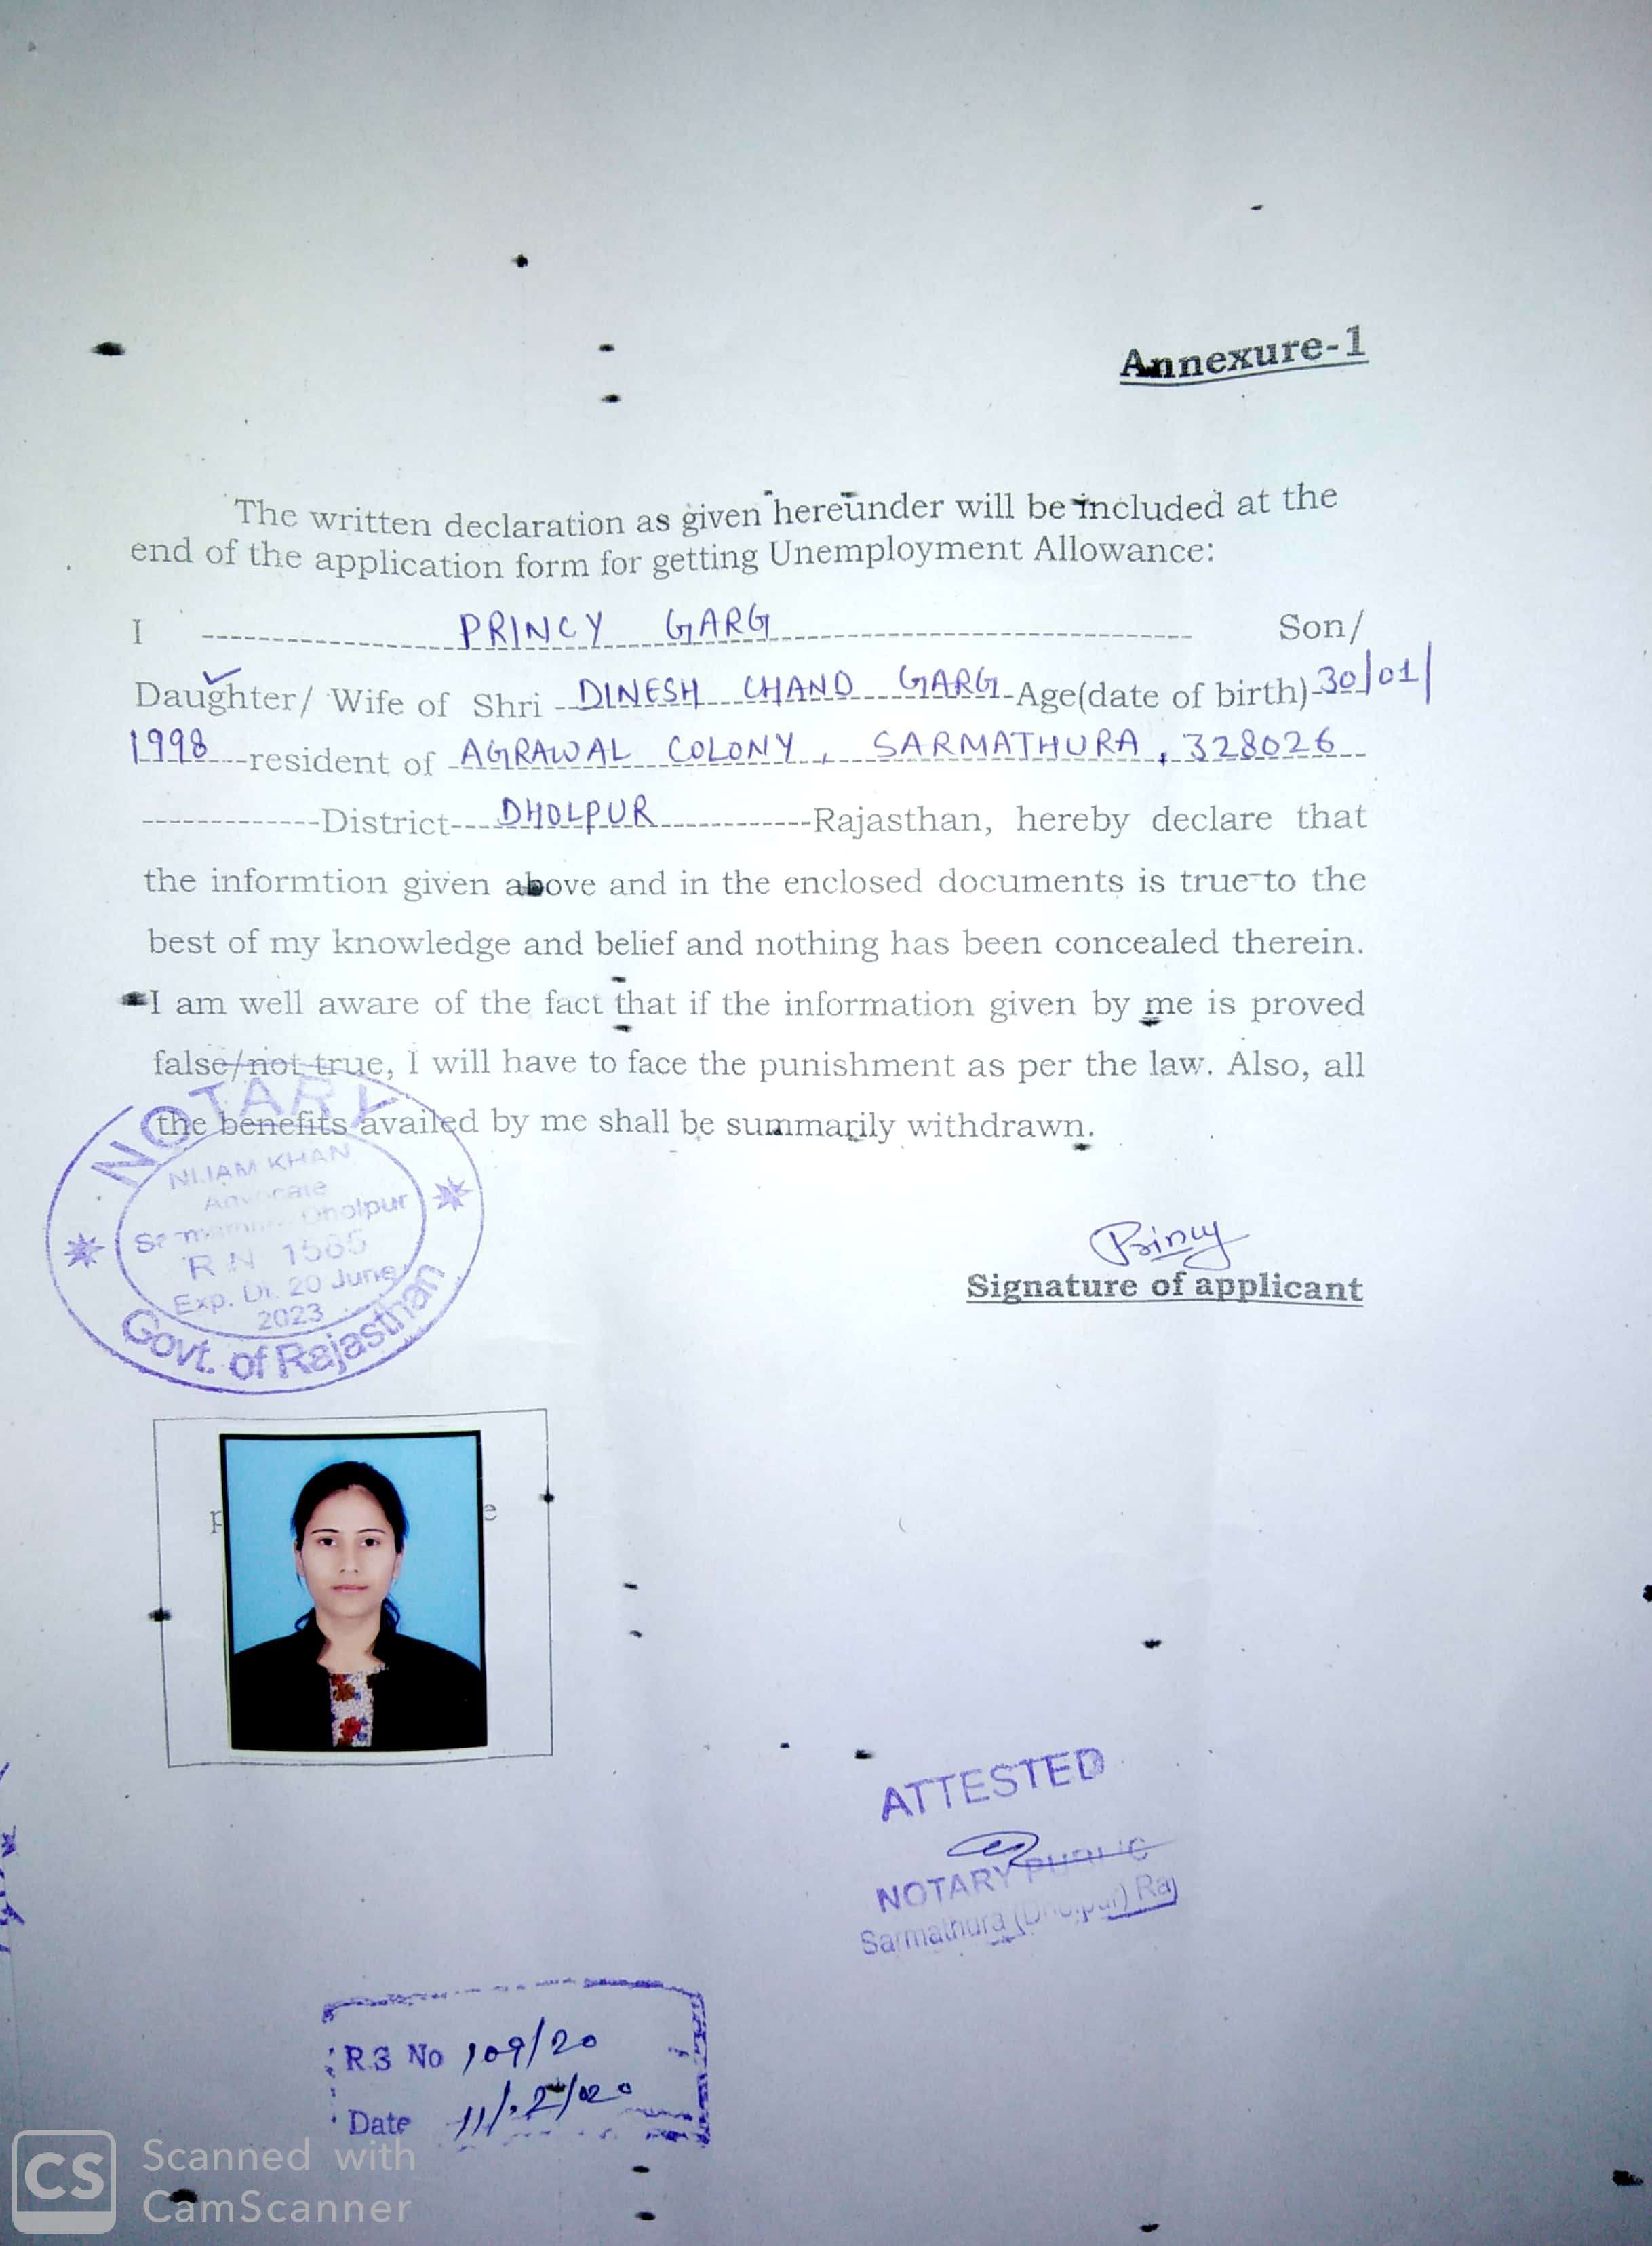 Annexure-1
The written declaration as given hereunder will be included at the
end of the application form for getting Unemployment Allowance:
I ---------- PRINCY GARG ---------- Son/
Daughter/ Wife of Shri --DINESH CHAND GARG-Age(date of birth)-30/01/
1998---resident of -AGRAWAL COLONY, SARMATHURA, 328026--
-------------District---DHOLPUR-----------Rajasthan, hereby declare that
the informtion given above and in the enclosed documents is true to the
best of my knowledge and belief and nothing has been concealed therein.
I am well aware of the fact that if the information given by me is proved
false/not true, I will have to face the punishment as per the law. Also, all
the benefits availed by me shall be summarily withdrawn.
NOTARY
NIJAM KHAN
Advocate
Dholpur
R.N 1565
Exp. Dt. 20 June
2023
Govt. of Rajasthan
Princy
Signature of applicant
p e
ATTESTED
NOTARY PUBLIC
Sarmathura (Dholpur) Raj
R.3 No 109/20
Date 11/2/020
CS Scanned with
CamScanner